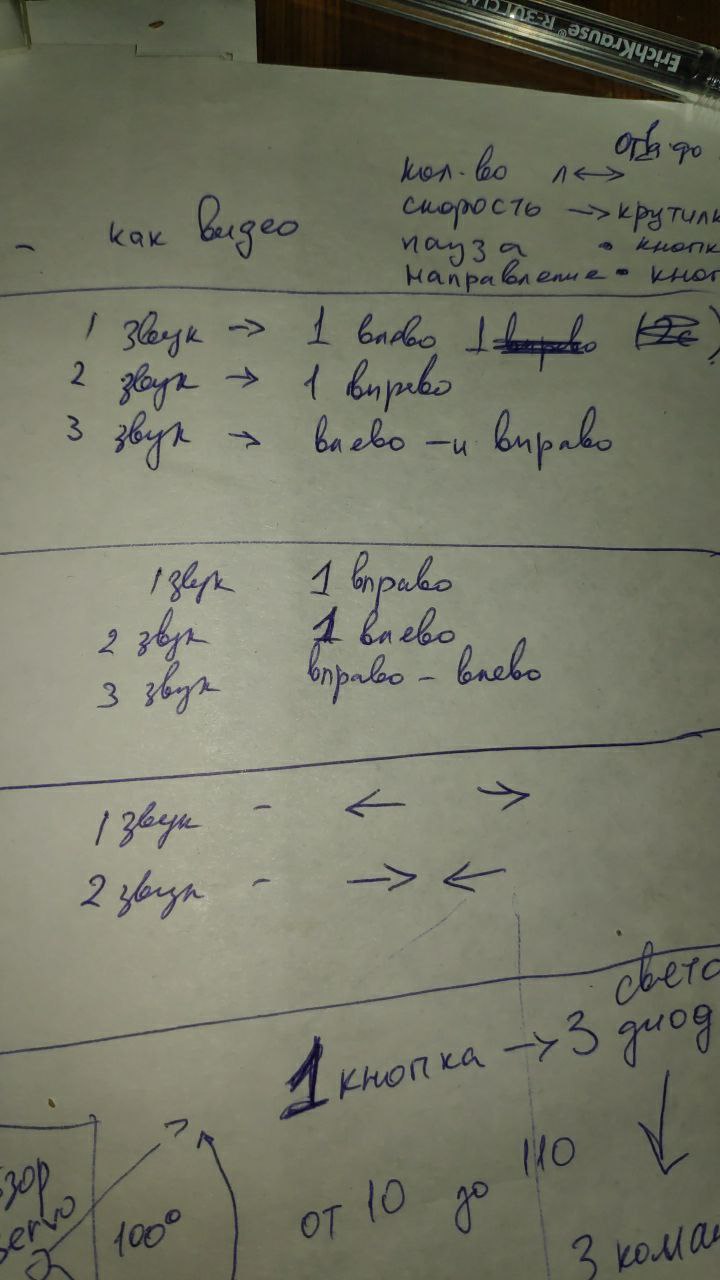 ErichKrause® R-301 CLA
до
кол-во л ↔
скорость → крутилк
- как видео
пауза • кнопк
направление • кноп
1 звук → 1 влево 1
2 звук → 1 вправо
3 звук → влево – и вправо
1 звук 1 вправо
2 звук 1 влево
3 звук вправо – влево
1 звук - ← →
2 звук - → ←
свето
1 кнопка → 3 диод
зор
servo
100°
от 10 до 110
3 коман